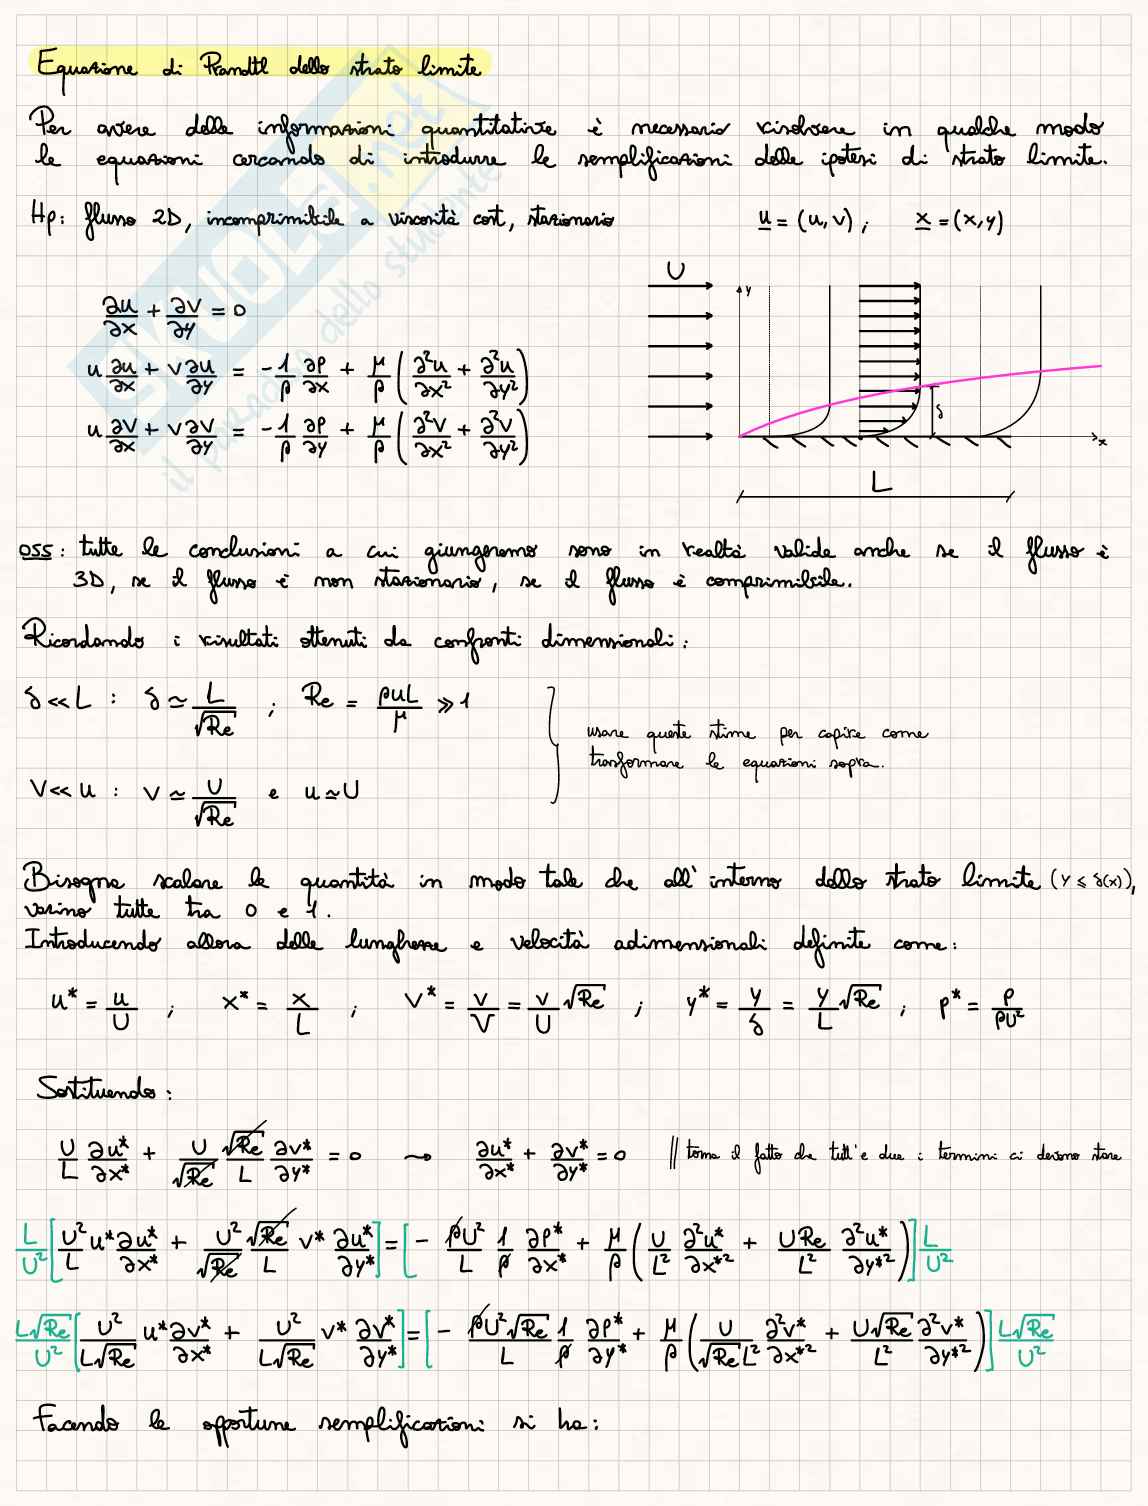 Equazione di Prandtl dello strato limite
Per avere delle informazioni quantitative è necessario risolvere in qualche modo
le equazioni cercando di introdurre le semplificazioni delle ipotesi di strato limite.
Hp: flusso 2D, incomprimibile a viscosità cost, stazionario u = (u,v) ; x = (x,y)
U
y
∂u/∂x + ∂v/∂y = 0
u ∂u/∂x + v ∂u/∂y = - 1/ρ ∂p/∂x + μ/ρ ( ∂²u/∂x² + ∂²u/∂y² )
u ∂v/∂x + v ∂v/∂y = - 1/ρ ∂p/∂y + μ/ρ ( ∂²v/∂x² + ∂²v/∂y² )
δ
x
L
SKUOLA.net
il paradiso dello studente
oss: tutte le conclusioni a cui giungeremo sono in realtà valide anche se il flusso è
3D, se il flusso è non stazionario, se il flusso è comprimibile.
Ricordando i risultati ottenuti da confronti dimensionali:
δ << L : δ ≃ L/√Re ; Re = ρuL/μ >> 1
usare queste stime per capire come
trasformare le equazioni sopra.
v << u : v ≃ U/√Re e u ≃ U
Bisogna scalare le quantità in modo tale che all'interno dello strato limite (y ≤ δ(x)),
varino tutte tra 0 e 1.
Introducendo allora delle lunghezze e velocità adimensionali definite come:
u* = u/U ; x* = x/L ; v* = v/V = v/U √Re ; y* = y/δ = y/L √Re ; p* = p/ρU²
Sostituendo:
U/L ∂u*/∂x* + U/√Re √Re/L ∂v*/∂y* = 0 ⤳ ∂u*/∂x* + ∂v*/∂y* = 0 // torna il fatto che tutt'e due i termini ci devono stare
L/U² [ U²/L u* ∂u*/∂x* + U²/√Re √Re/L v* ∂u*/∂y* ] = [ - ρU²/L 1/ρ ∂p*/∂x* + μ/ρ ( U/L² ∂²u*/∂x*² + URe/L² ∂²u*/∂y*² ) ] L/U²
L√Re/U² [ U²/L√Re u* ∂v*/∂x* + U²/L√Re v* ∂v*/∂y* ] = [ - ρU²√Re/L 1/ρ ∂p*/∂y* + μ/ρ ( U/√Re L² ∂²v*/∂x*² + U√Re/L² ∂²v*/∂y*² ) ] L√Re/U²
Facendo le opportune semplificazioni si ha: